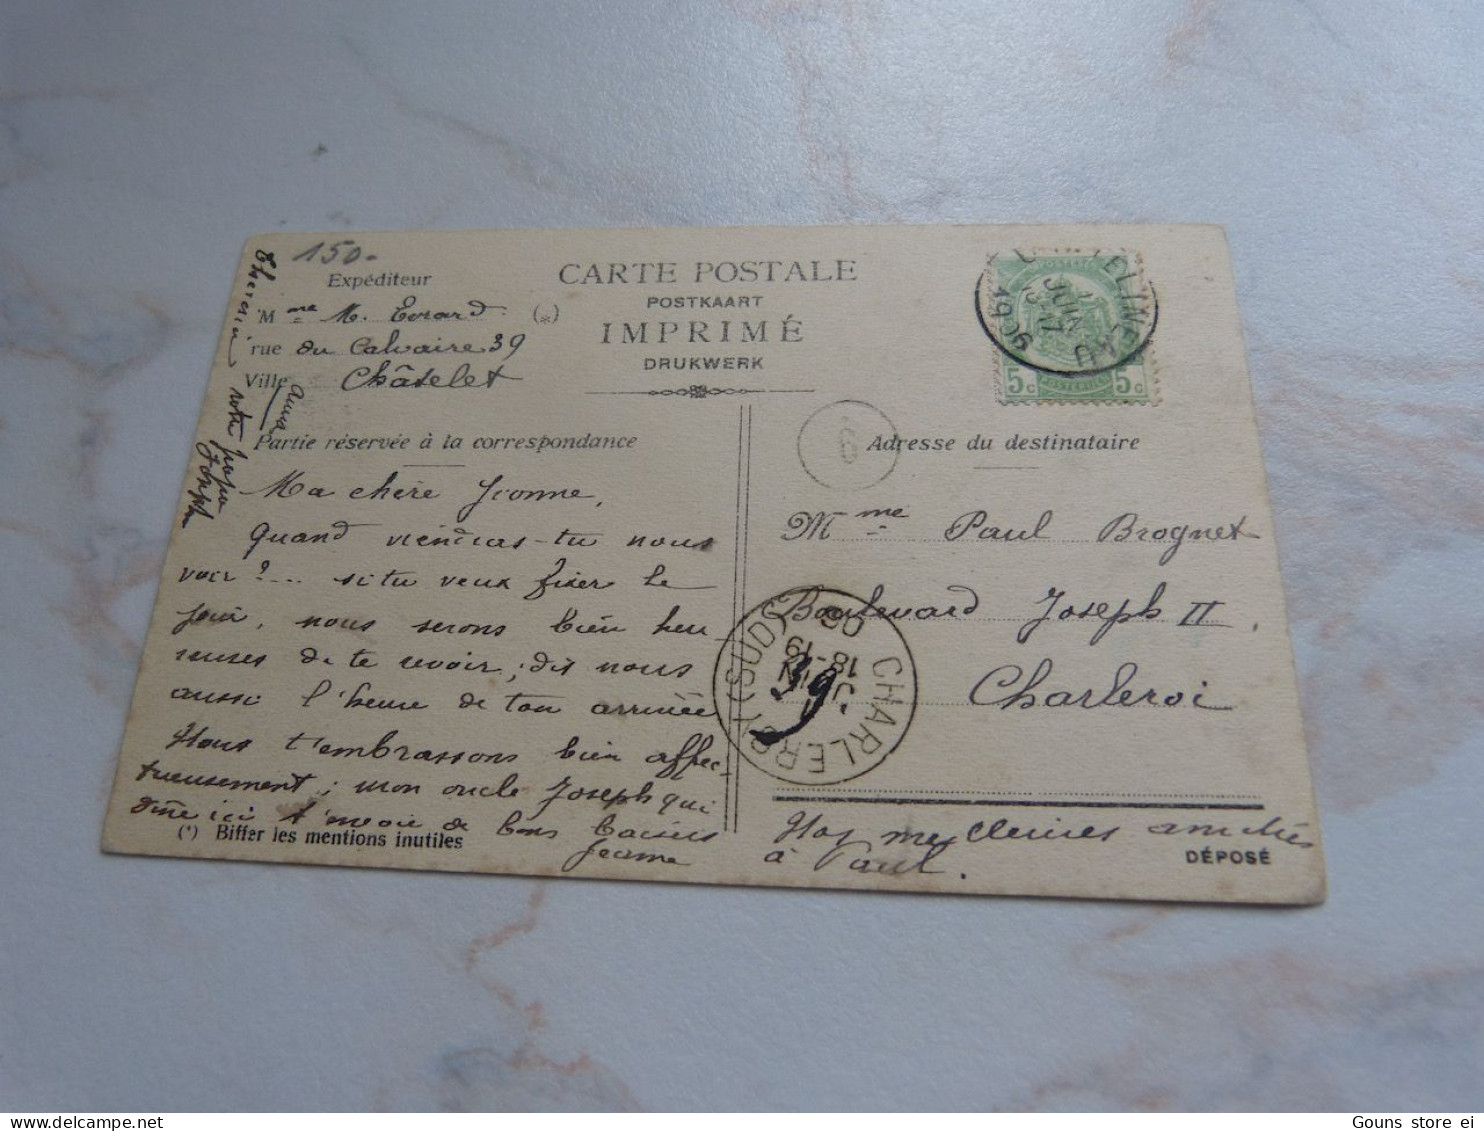 150.-
Expéditeur
Mme M. Evrard (*)
rue du Calvaire 39
Ville Châtelet
CARTE POSTALE
POSTKAART
IMPRIMÉ
DRUKWERK
5c 5c
1909
17 JUIN
Partie réservée à la correspondance
Ma chère Yvonne,
Quand viendras-tu nous
voir ?... si tu veux fixer le
jour, nous serons bien heu-
reuses de te revoir, dis nous
aussi l'heure de ton arrivée
Nous t'embrassons bien affec-
tueusement; mon oncle Joseph qui
dîne ici t'envoie de bons baisers
Jeanne
(*) Biffer les mentions inutiles
votre papa
Joseph
6
Adresse du destinataire
Mme Paul Brognet
Boulevard Joseph II
39.
Charleroi
CHARLEROY (SUD)
18-19
JUIN
09
meilleures amitiés
à Paul.
DÉPOSÉ
Gouns store ei